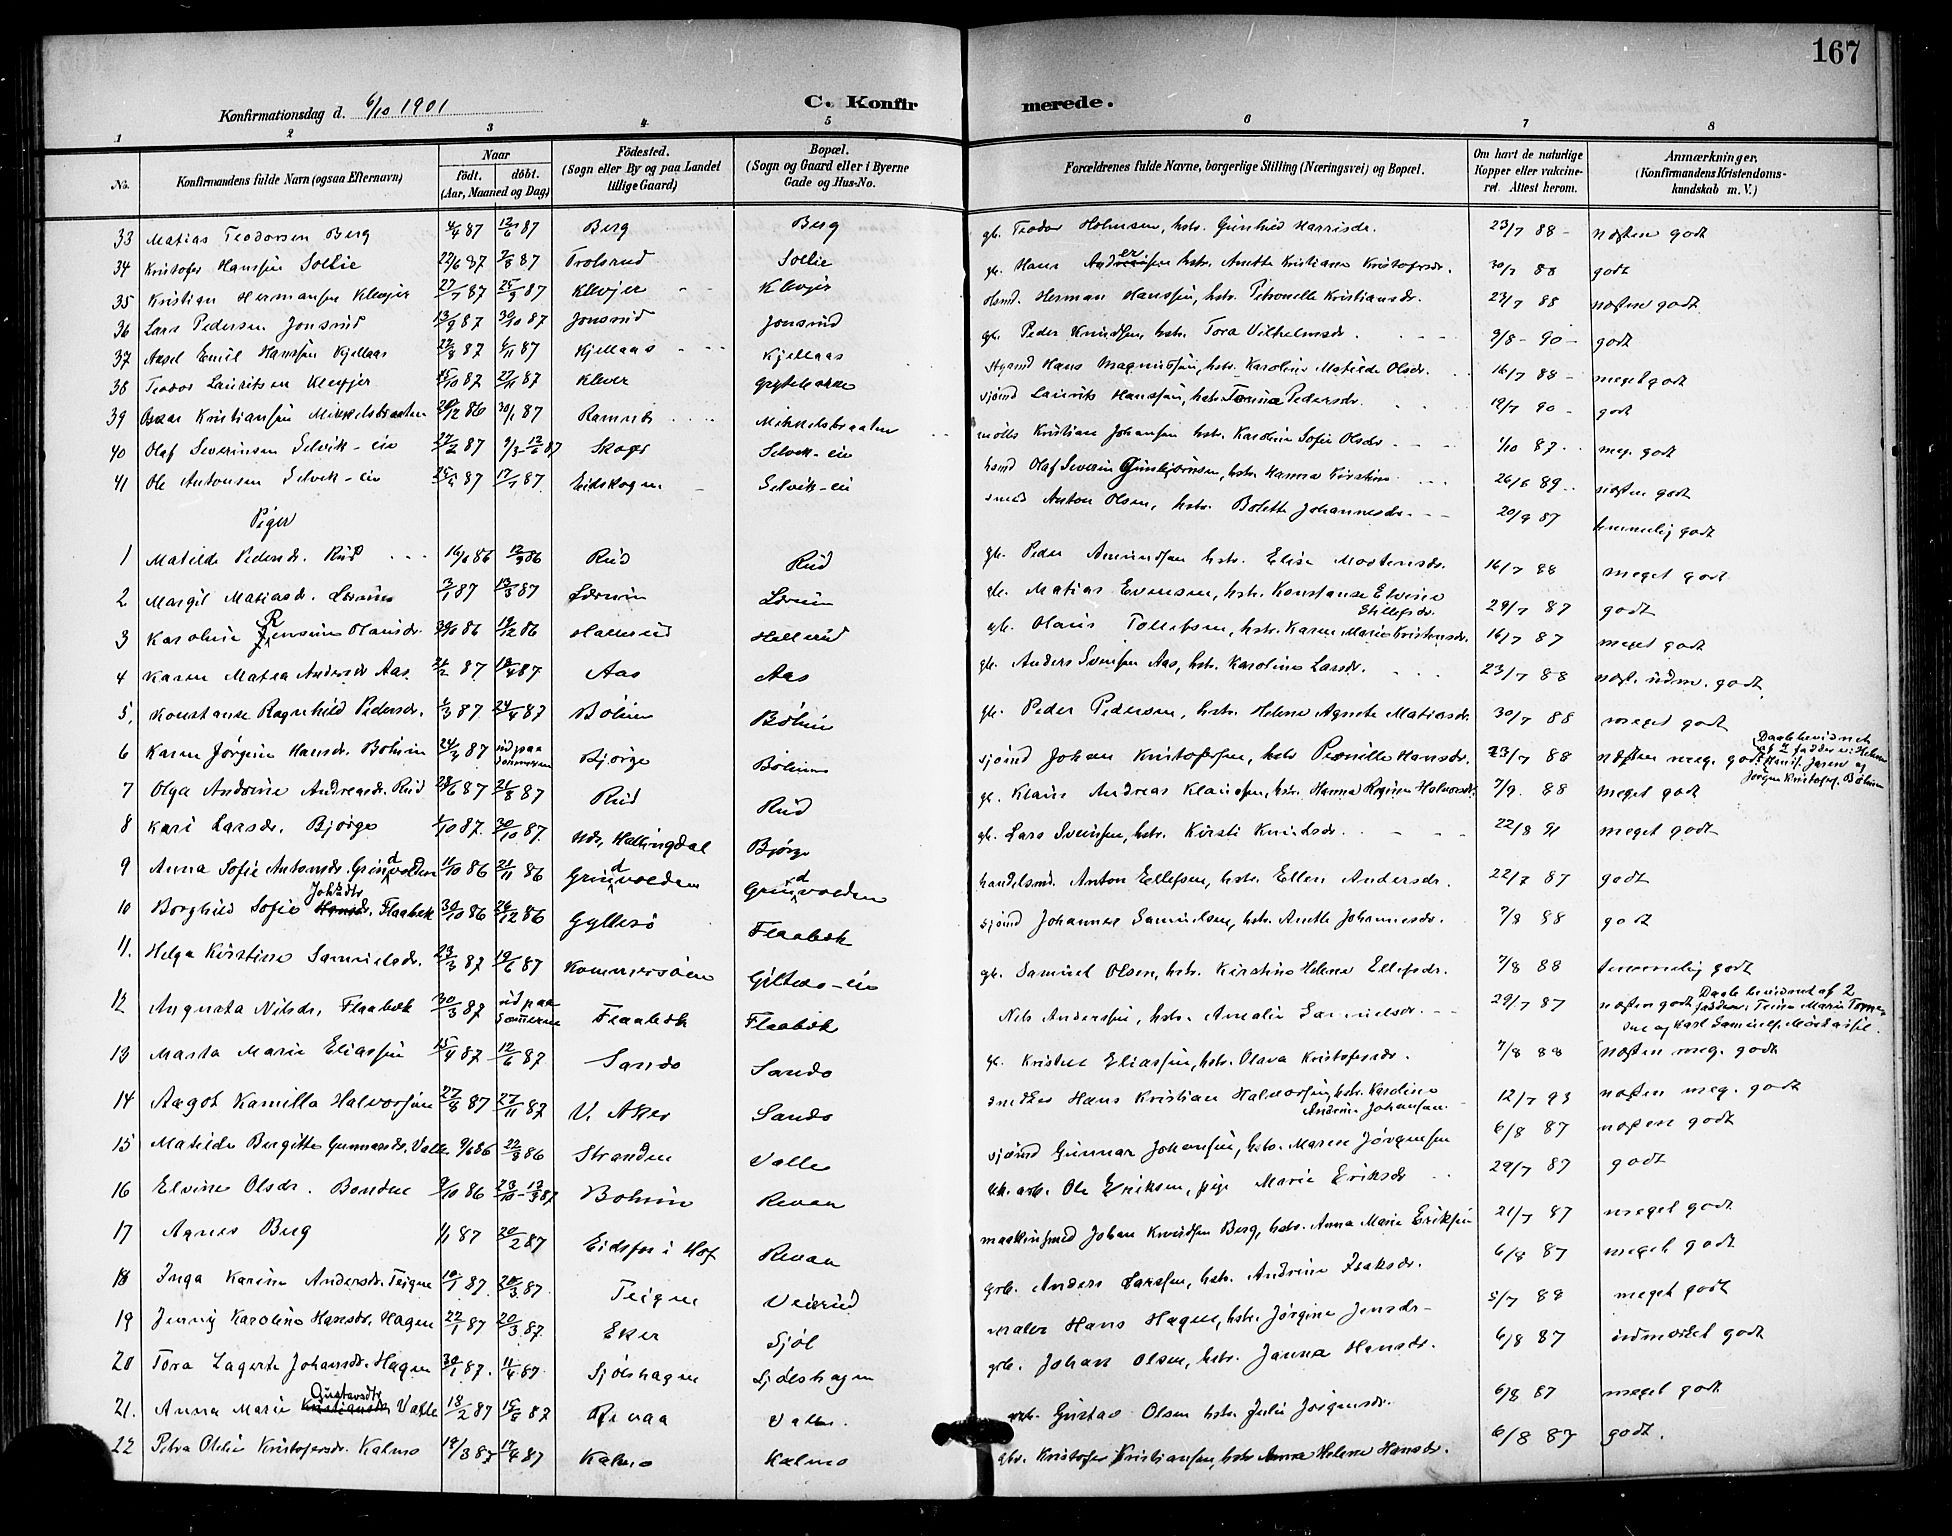 167
Konfirmationsdag d. 6/10 1901
C. Konfirmerede.
1 2 3 4 5 6 7 8
No. Konfirmandens fulde Navn (ogsaa Efternavn) Naar født. døbt. (Aar, Maaned og Dag) Födested. (Sogn eller By og paa Landet tillige Gaard) Bopæl. (Sogn og Gaard eller i Byerne Gade og Hus-No. Forældrenes fulde Navne, borgerlige Stilling (Næringsvei) og Bopæl. Om havt de naturlige Kopper eller vakcineret. Attest herom. Anmærkninger. (Konfirmandens Kristendomskundskab m. V.)
33 Matias Teodorsen Berg 4/4 87 12/6 87 Berg Berg gb. Teodor Holmsen, hstr. Gunhild Harrisdr. 23/7 88 - næsten godt
34 Kristofer Hanssen Sollie 22/6 87 7/8 87 Trolsrud Sollie gb. Hans Andersen hstr. Anette Kristiane Kristofersdr. 30/7 88 godt
35 Kristian Hermansen Klevjer 27/7 87 25/9 87 Klevjer Klevjer Husmd. Herman Hanssen, hstr. Petronelle Kristiansdr. 23/7 88 næsten godt
36 Lars Pedersen Jonsrud 13/9 87 30/10 87 Jonsrud Jonsrud gb. Peder Knudsen, hstr. Tora Vilhelmsdr. 9/8 - 90 - godt
37 Axel Emil Hanssen Kjellaas 22/8 87 6/11 87 Kjellaas Kjellaas Hans Magnussen, hstr. Karoline Matilde Olsdr. 16/7 88 - meget godt
38 Teodor Lauritsen Klevjer 15/10 87 27/11 87 Klever sjømd Laurits Hanssen, hstr. Pedersdr. 19/7 90 - godt
39 Oscar Kristianssen Mikkelsbraaten 20/12 86 30/1 87 Ramvik Mikkelsbraaten Kristian Johansen hstr. Karoline Sofie Olsdr 1/10 87 meg. godt
40 Olaf Severinsen Selvik - eie 27/2 87 9/3 - 12/6 87 Skoger Selvik - eie husmd Olaf Severin Gunbjørnsen, hstr. Hanna Kirstine 26/6 89 næsten godt
41 Ole Antonsen Selvik - eie 25/5 87 17/7 87 Eidskogen Selvik - eie smed Anton Olsen, hstr. Bolette Johannesdr. 20/9 87 temmelig godt
Piger
1 Matilde Pedersdr. Rud 16/8 86 12/9 86 Rud Rud gb. Peder Amundsen hstr. Elise Mortensdr. 16/7 88 meget godt
2 Margit Matiasdr. Løvnes 3/1 87 13/3 87 gb. Matias Evensen, hstr. Konstanse Elvine Ellefsdr. 29/7 87 godt
3 Karoline Rensine Olausdr. 30/10 86 19/12 86 Hallerud Hallerud gb. Olaus Tollefsen, hstr. Karen Marie Kristensdr. 16/7 87 meget godt
4 Karen Matea Andersdr Aas 21/2 87 18/4 87 Aas Aas gb. Anders Svensen Aas, hstr. Karoline Larsdr. 23/7 88 næst. udm. godt
5, Konstanse Ragnhild Pedersdr. 6/3 87 24/4 87 Bolum Bölum gb. Peder Pedersen, hstr. Helene Agnete Matiasdr. 30/7 88 meget godt
6 Karen Jørgine Hansdr. Bölum 24/3 87 ud paa Sommeren Bjørge Bölum sjømd Johan Kristofersen, hstr Pernille Hansdr. 23/7 88 næsten meg. godt Daab bevidnet af 2 faddere: Helene Hansf. Jaren og Jørgen Kristofes. Bölum
7 Olga Andrine Andreasdr. Rud 28/6 87 21/8 87 Rud Rud gb. Klaus Andreas Klaussen, hstr. Hanna Regine Halvorsdr. 7/9. 88 meget godt
8 Kari Larsdr. Bjørge 5/10 87. 30/10 87. Nds, Hallingdal Bjørge gb. Lars Svensen, hstr. Kirsti Knudsdr. 22/8 91 meget godt
9 Anna Sofie Antonsdr. Grindvolden 11/10 86 21/11 86 Grindvolden Grindvolden handelsmd. Anton Ellefsen, hstr. Ellen Andersdr. 22/7 87 godt
10 Borghild Sofie Johsdtr Flaabek 30/10 86 26/12 86 Gyllesø Flaabek sjømd Johannes Samuelsen, hstr. Anette Johannesdr. 7/8 88 godt
11. Helga Kirstine Samuelsdr. 23/3 87 19/6 87 Kommersøen Giltvedt - eie gb. Samuel Olsen, hstr. Kirstine Helene Ellefsdr. 7/8 88 temmelig godt
12 Augusta Nilsdr. Flaabek 30/3 87 ud paa Sommeren Flaabek Flaabek Nils Anderssen, hstr. Amalie Samuelsdr. 29/7 87 næsten godt Daab bevidnet af 2 faddere: Trine Marie Torne og Karl Samuels. Mörkassil.
13 Marta Marie Eliassen 15/4 87 12/6 87 Sande Sande gb. Kristen Eliassen, hstr. Olava Kristofersdr. 7/8 88 næsten meg. godt
14 Aagot Kamilla Halvorsen 27/8 87 27/11 87 V. Aker Sande snedker Hans Kristian Halvorsen, hstr. Karoline Andrine Johansen 12/7 93 næsten meg. godt
15 Matilde Bergitte Gunnarsdr. Valle 9/6 86 22/8 86 Stranden Valle sjømd Gunnar Johansen, hstr. Maren Jørgensen 6/8 87 næsten godt
16 Elvine Olsdr. Bonden 9/10 86 23/10 - 13/3 87 Bolum Revaa Ole Eriksen, pige Marie Eriksdr 29/7 87 godt
17 Agnes Berg 1/1 87 20/2 87 Eidsfos i Hof Revaa maskinsmed Johan Knudsen Berg, hstr. Anna Marie Eriksen 21/7 87 meget godt
18 Inga Karine Andersdr. Teigen 10/1 87. 20/3 87. Teigen Veierud grb. Anders Larssen, hstr. Andrine Isaksdr. 6/8 87 meget godt
19 Jenny Karoline Hansdr. Hagen 22/1 87 20/3 87. Eker Sjøl maler Hans Hagen, hstr. Jørgine Jensdr - 5/7 88 meget godt
20 Tora Lagerta Johansdr. Hagen 30/1 87. 11/4 87. Sjølshagen Sjølshagen grb. Johan Olsen, hstr. Janna Hansdr. 6/8 87 udmærket godt
21. Anna Marie Gustavsdtr Valle 18/2 87 15/5 87 Revaa Valle. Gustav Olsen hstr. Julie Jørgensdr. 6/8 87 meget godt
22 Petra Otilie Kristofersdr. Kalmo 19/3 87 17/4 87 Kalmo Kalmo gbr. Kristofer Kristiansen, hstr Anna Helene Hansdr. 6/8 87 godt.